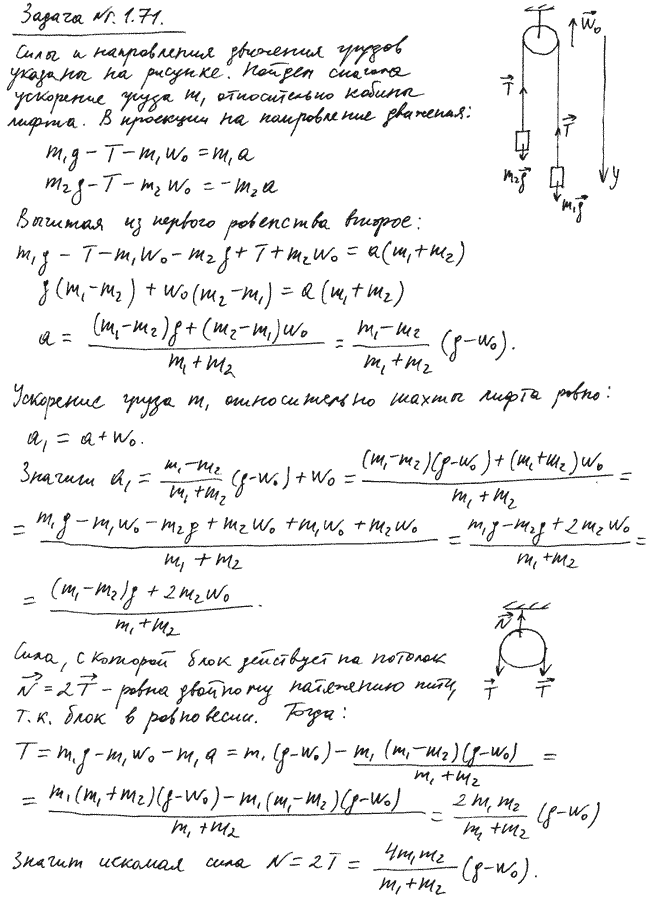 Задача №г. 1.71.
Силы и направления движения грузов
указаны на рисунке. Найдем сначала
ускорение груза m₁ относительно кабины
лифта. В проекции на направление движения:
m₁g − T − m₁w₀ = m₁a
m₂g − T − m₂w₀ = −m₂a
Вычитая из первого равенства второе:
m₁g − T − m₁w₀ − m₂g + T + m₂w₀ = a(m₁+m₂)
g(m₁−m₂) + w₀(m₂−m₁) = a(m₁+m₂)
a = ((m₁−m₂)g + (m₂−m₁)w₀)/(m₁+m₂) = (m₁−m₂)/(m₁+m₂) (g−w₀).
Ускорение груза m₁ относительно шахты лифта равно:
a₁ = a + w₀.
Значит a₁ = (m₁−m₂)/(m₁+m₂) (g−w₀) + w₀ = ((m₁−m₂)(g−w₀) + (m₁+m₂)w₀)/(m₁+m₂) =
= (m₁g − m₁w₀ − m₂g + m₂w₀ + m₁w₀ + m₂w₀)/(m₁+m₂) = (m₁g − m₂g + 2m₂w₀)/(m₁+m₂) =
= ((m₁−m₂)g + 2m₂w₀)/(m₁+m₂).
Сила, с которой блок действует на потолок
N⃗ = 2T⃗ − равна двойному натяжению нити,
т.к. блок в равновесии. Тогда:
T = m₁g − m₁w₀ − m₁a = m₁(g−w₀) − (m₁(m₁−m₂)(g−w₀))/(m₁+m₂) =
= (m₁(m₁+m₂)(g−w₀) − m₁(m₁−m₂)(g−w₀))/(m₁+m₂) = (2m₁m₂)/(m₁+m₂) (g−w₀)
Значит искомая сила N = 2T = (4m₁m₂)/(m₁+m₂) (g−w₀).
W⃗₀
T⃗
T⃗
m₂g⃗
m₁g⃗
y
N⃗
T⃗
T⃗